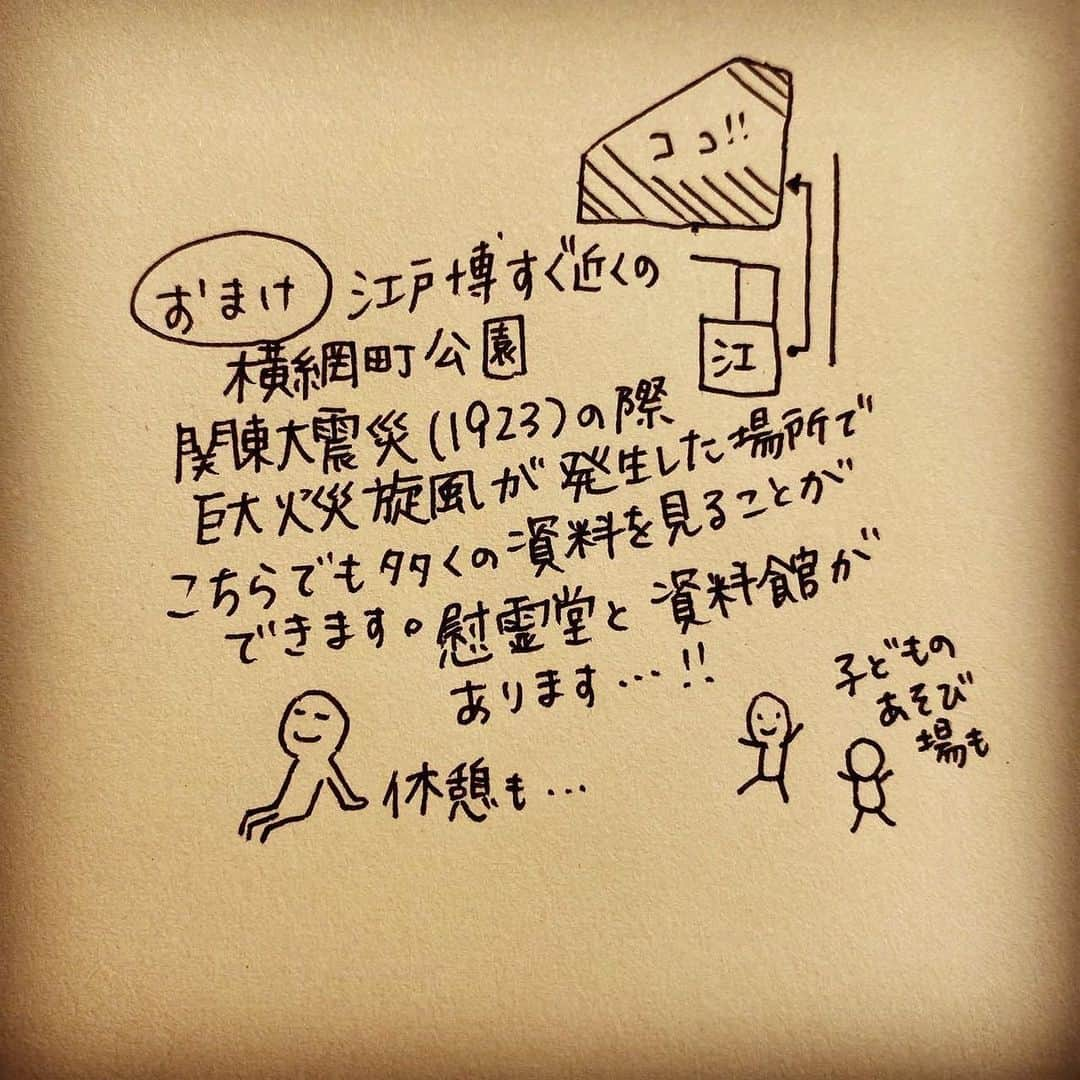 ココ!!
おまけ 江戸博すぐ近くの
江
横網町公園
関東大震災(1923)の際
巨大火災旋風が発生した場所で
こちらでも多くの資料を見ることが
できます。慰霊堂と資料館が
あります…!!
子どもの
あそび
場も
休憩も…